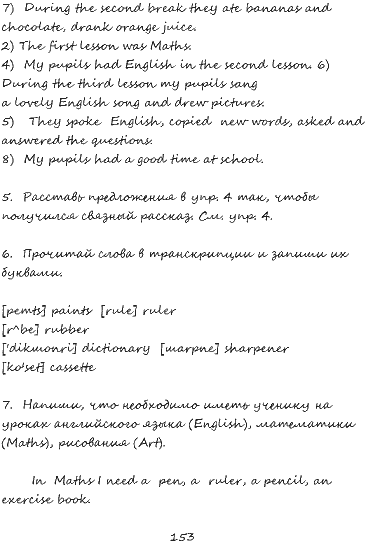 7) During the second break they ate bananas and
chocolate, drank orange juice.
2) The first lesson was Maths.
4) My pupils had English in the second lesson. 6)
During the third lesson my pupils sang
a lovely English song and drew pictures.
5) They spoke English, copied new words, asked and
answered the questions.
8) My pupils had a good time at school.
5. Расставь предложения в упр. 4 так, чтобы
получился связный рассказ. См. упр. 4.
6. Прочитай слова в транскрипции и запиши их
буквами.
[pemts] paints [rule] ruler
[r^be] rubber
['dikшonri] dictionary [шarpne] sharpener
[ko'set] cassette
7. Напиши, что необходимо иметь ученику на
уроках английского языка (English), математики
(Maths), рисования (Art).
In Maths I need a pen, a ruler, a pencil, an
exercise book.
153